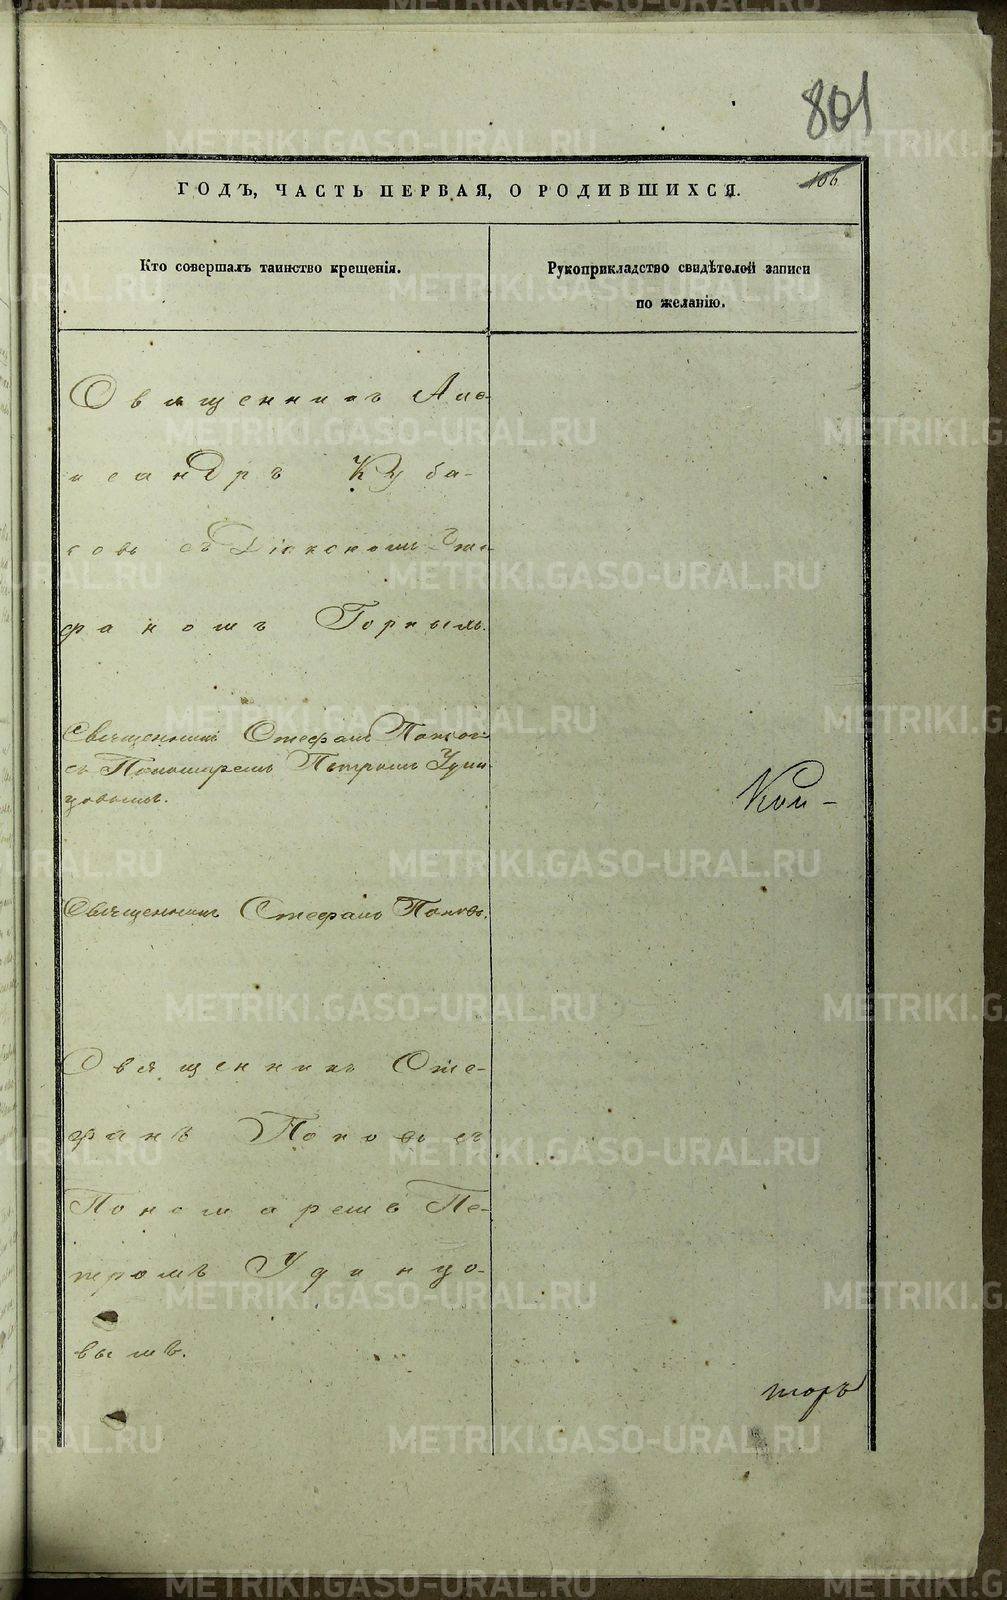 801
106
ГОДЪ, ЧАСТЬ ПЕРВАЯ, О РОДИВШИХСЯ.
Кто совершалъ таинство крещенія.
Рукоприкладство свидѣтелей записи
по желанію.
Священникъ Але-
ксандръ Куба-
ровъ съ Діакономъ Сте-
фаномъ Горнымъ.
Священникъ Стефанъ Поповъ
съ Пономаремъ Петромъ Удин-
цовымъ.
Кон-
Священникъ Стефанъ Поповъ.
Священникъ Сте-
фанъ Поповъ съ
Пономаремъ Пе-
тромъ Удинцо-
вымъ.
торъ
METRIKI.GASO-URAL.RU